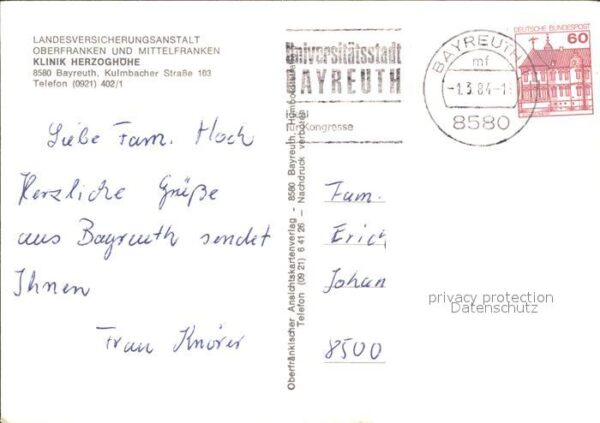 LANDESVERSICHERUNGSANSTALT
OBERFRANKEN UND MITTELFRANKEN
KLINIK HERZOGHÖHE
8580 Bayreuth, Kulmbacher Straße 103
Telefon (0921) 402/1
Liebe Fam. Hoch
Herzliche Grüße
aus Bayreuth sendet
Ihnen
Frau Knörer
Oberfränkischer Ansichtskartenverlag - 8580 Bayreuth,
Telefon (09 21) 6 41 26 - Nachdruck verboten
Universitätsstadt
BAYREUTH
Kongresse
BAYREUTH
mf
-1.3.84-1
8580
DEUTSCHE BUNDESPOST
60
Fam.
Erich
Johan
8500
privacy protection
Datenschutz